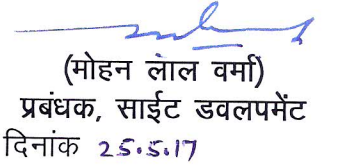 (मोहन लाल वर्मा)
प्रबंधक, साईट डवलपमेंट
दिनांक 25.5.17